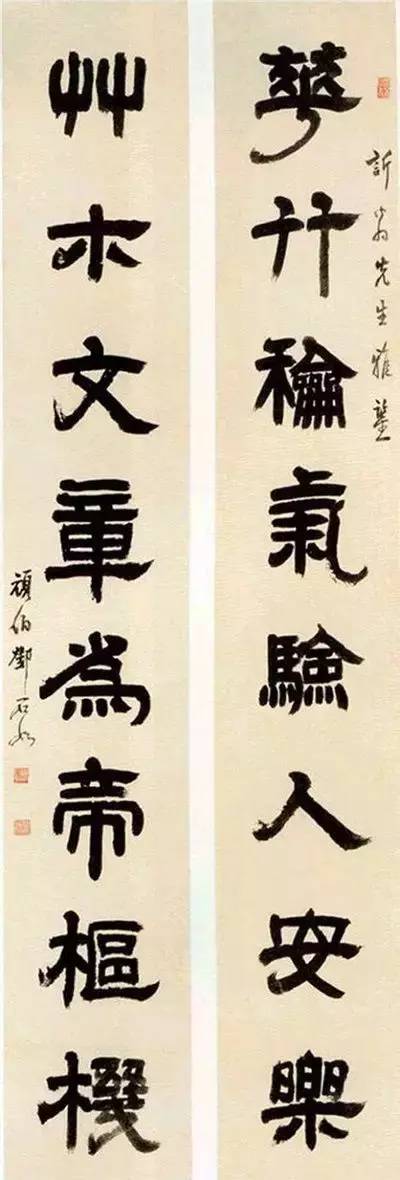 訢翁先生雅鑒
華竹龢氣驗人安樂
艸木文章為帝樞機
頑伯鄧石如